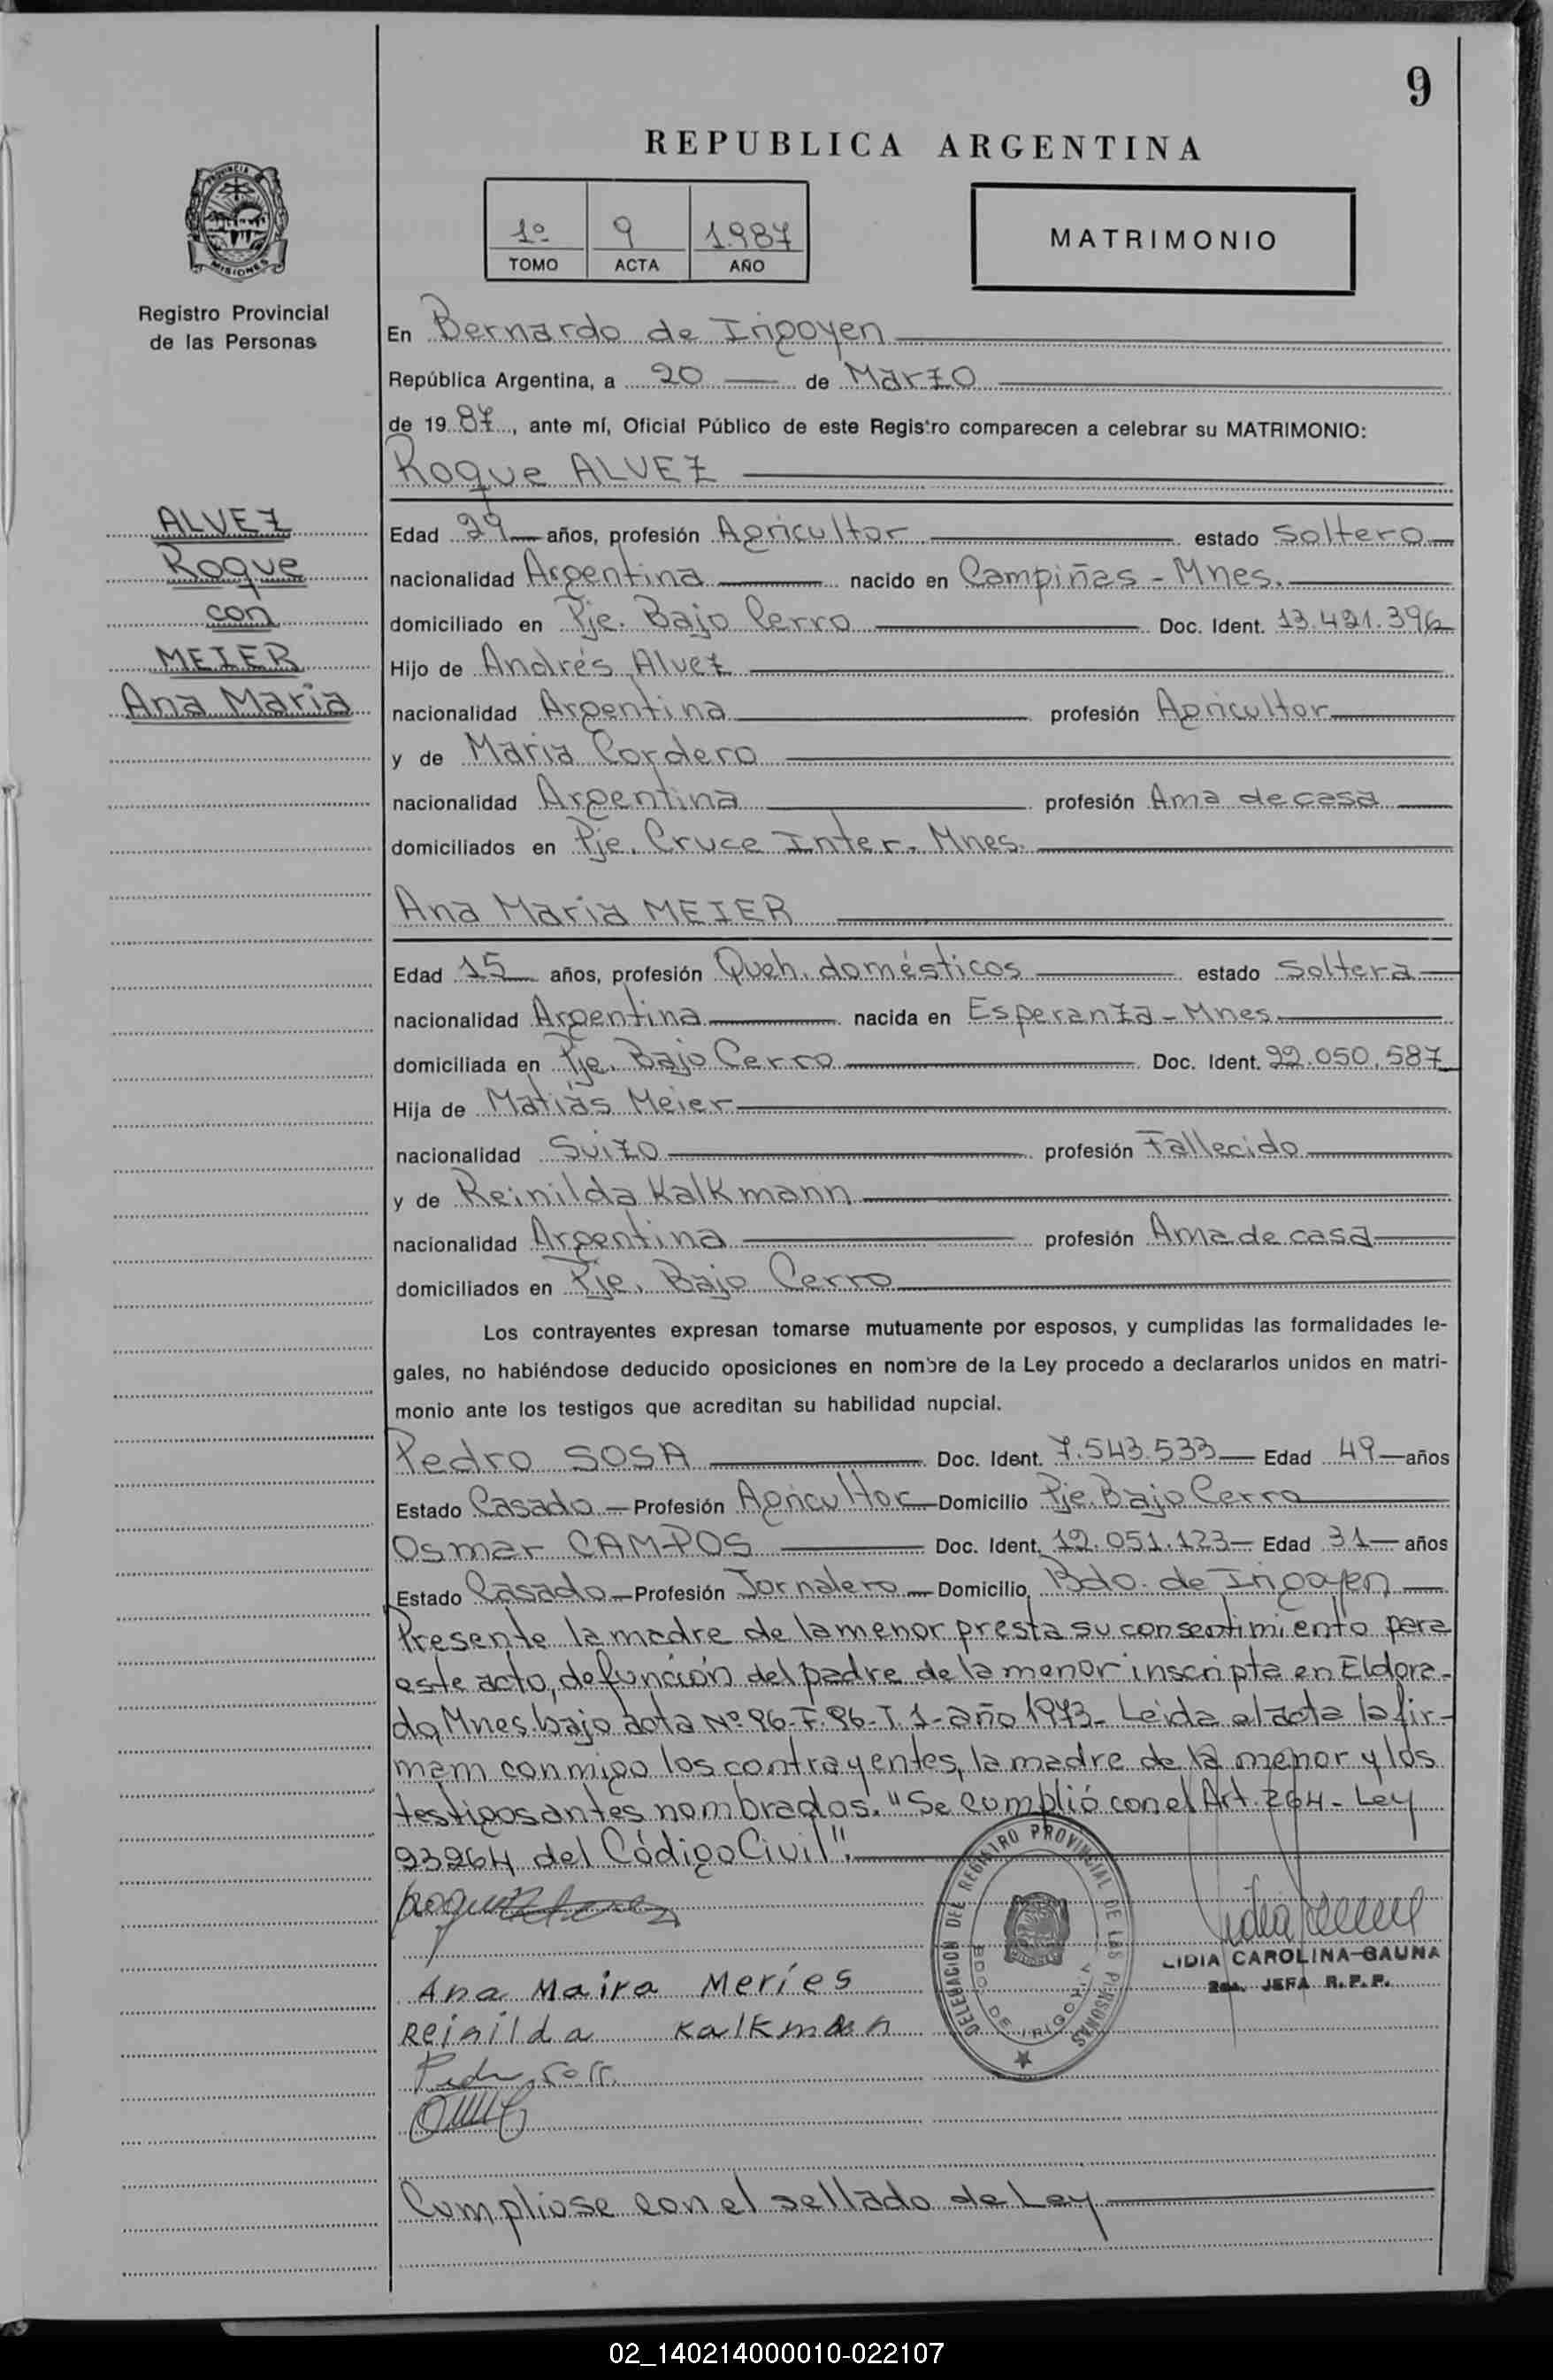 9
REPUBLICA ARGENTINA
1º 9 1.987
TOMO ACTA AÑO
MATRIMONIO
PROVINCIA DE
MISIONES
Registro Provincial
de las Personas
En Bernardo de Irigoyen
República Argentina, a 20 de Marzo
de 19 87, ante mí, Oficial Público de este Registro comparecen a celebrar su MATRIMONIO:
Roque ALVEZ
ALVEZ
Roque
con
MEIER
Ana Maria
Edad 27 años, profesión Agricultor estado Soltero
nacionalidad Argentina nacido en Campiñas - Mnes.
domiciliado en Pje. Bajo Cerro Doc. Ident. 13.421.396
Hijo de Andrés Alvez
nacionalidad Argentina profesión Agricultor
y de Maria Cordero
nacionalidad Argentina profesión Ama de casa
domiciliados en Pje. Cruce Inter. Mnes.
Ana Maria MEIER
Edad 15 años, profesión Queh. domésticos estado Soltera
nacionalidad Argentina nacida en Esperanza - Mnes.
domiciliada en Pje. Bajo Cerro Doc. Ident. 22.050.587
Hija de Matias Meier
nacionalidad Suizo profesión Fallecido
y de Reinilda Kalkmann
nacionalidad Argentina profesión Ama de casa
domiciliados en Pje. Bajo Cerro
Los contrayentes expresan tomarse mutuamente por esposos, y cumplidas las formalidades le-
gales, no habiéndose deducido oposiciones en nombre de la Ley procedo a declararlos unidos en matri-
monio ante los testigos que acreditan su habilidad nupcial.
Pedro SOSA Doc. Ident. 7.543.533 Edad 49 años
Estado Casado Profesión Agricultor Domicilio Pje. Bajo Cerro
Osmar CAMPOS Doc. Ident. 12.051.123 Edad 31 años
Estado Casado Profesión Jornalero Domicilio Bdo. de Irigoyen
Presente la madre de la menor presta su consentimiento para
este acto, defunción del padre de la menor inscripta en Eldora-
do, Mnes. bajo acta Nº 96-F. 96-T. 1-año 1973- Leída el acta la fir-
mam conmigo los contrayentes, la madre de la menor y los
testigos antes nombrados. "Se cumplió con el Art. 264 - Ley
23264 del Código Civil".
Roque Alvez
Ana Maira Meries
Reinilda Kalkmann
Pedro Sosa
DELEGACION DEL REGISTRO PROVINCIAL DE LAS PERSONAS
BDO. DE IRIGOYEN
LIDIA CAROLINA GAUNA
2da. JEFA R.P.P.
Cumpliose con el sellado de Ley
02_140214000010-022107